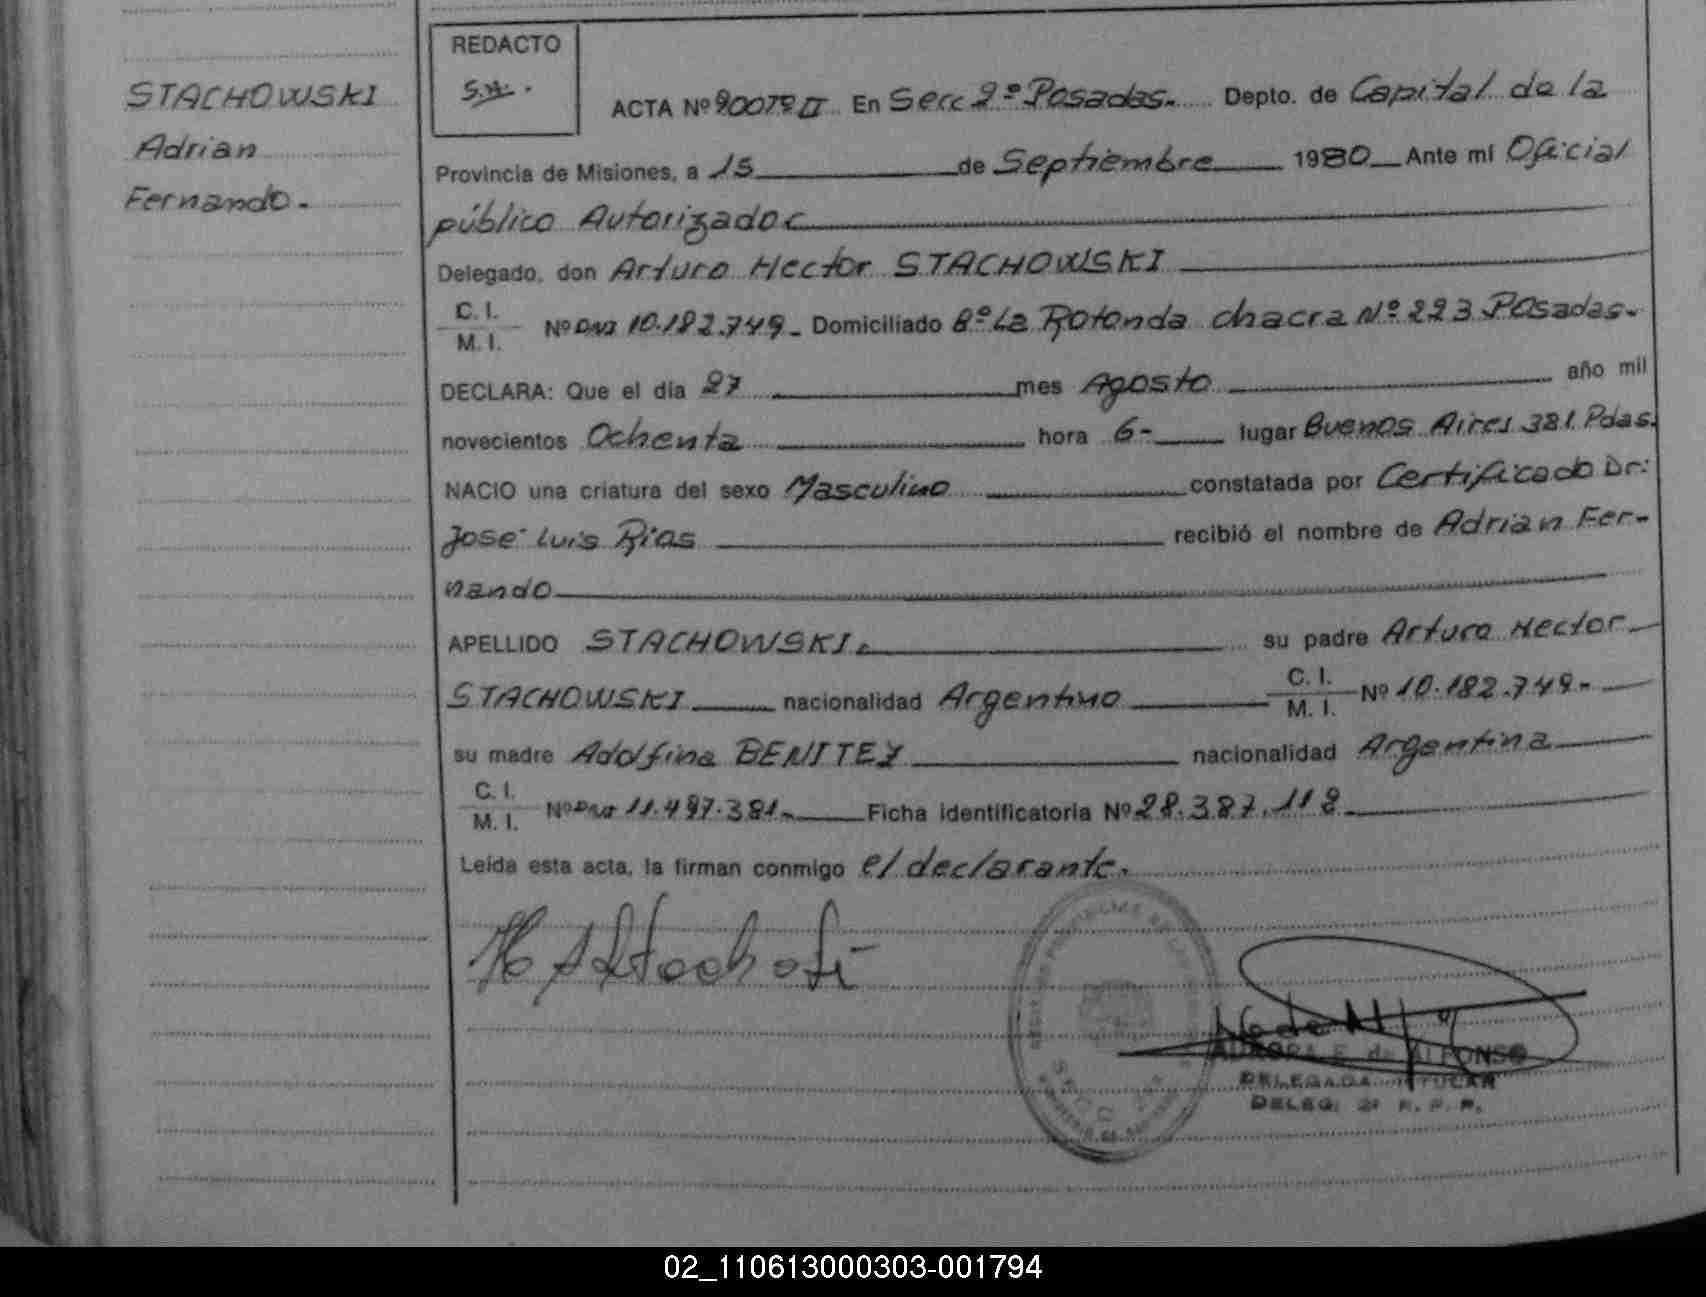 STACHOWSKI
Adrian
Fernando.
REDACTO
ACTA Nº 90079 II En Secc 2º Posadas. Depto. de Capital de la
Provincia de Misiones, a 15 de Septiembre 1980 Ante mi Oficial
público Autorizado
Delegado, don Arturo Hector STACHOWSKI
C. I.
M. I.
Nº DNI 10.182.749 - Domiciliado Bº La Rotonda chacra Nº 223 Posadas.
DECLARA: Que el día 27 mes Agosto año mil
novecientos Ochenta hora 6- lugar Buenos Aires 381 Pdas.
NACIO una criatura del sexo Masculino constatada por Certificado Dr:
José Luis Rios recibió el nombre de Adrian Fer-
nando
APELLIDO STACHOWSKI. su padre Arturo Hector
STACHOWSKI nacionalidad Argentino C. I. M. I. Nº 10.182.749-
su madre Adolfina BENITEZ nacionalidad Argentina
C. I.
M. I.
Nº DNI 11.497.381- Ficha identificatoria Nº 28.387.112
Leída esta acta, la firman conmigo el declarante.
AURORA E. de ALFONSO
DELEGADA TITULAR
DELEG. 2ª R. P. P.
02_110613000303-001794